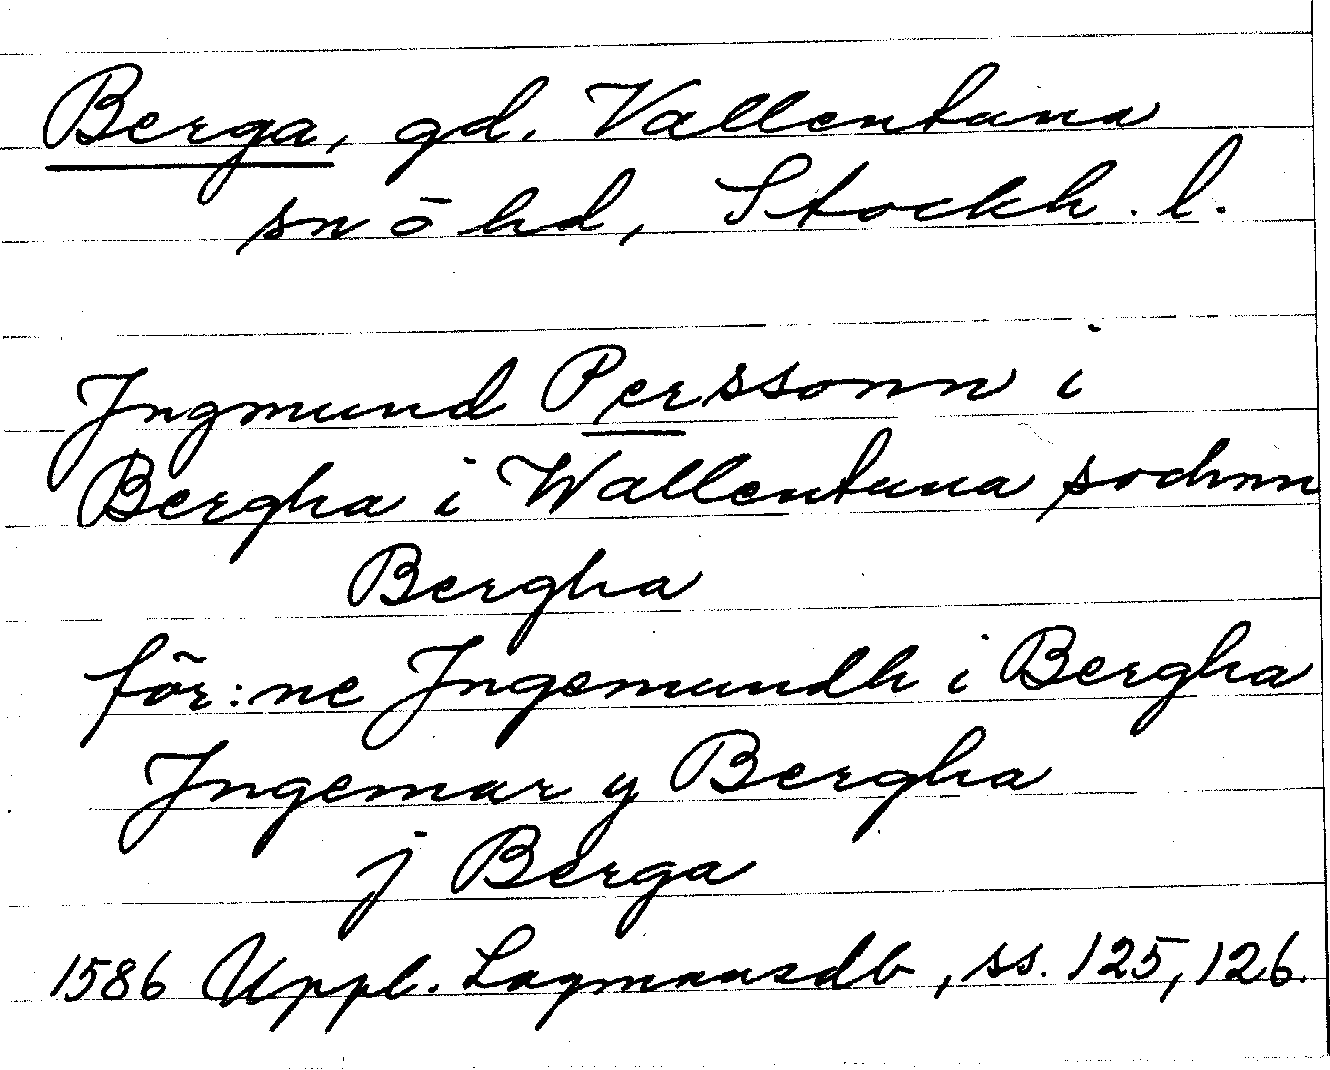 Berga, gd. Vallentuna
sn o hd, Stockh. l.
Jngmund Perssonn i
Bergha i Wallentuna sochnn
Bergha
för:ne Jngemundh i Bergha
Jngemar y Bergha
j Berga
1586 Uppl. Lagmansdb, ss. 125, 126.